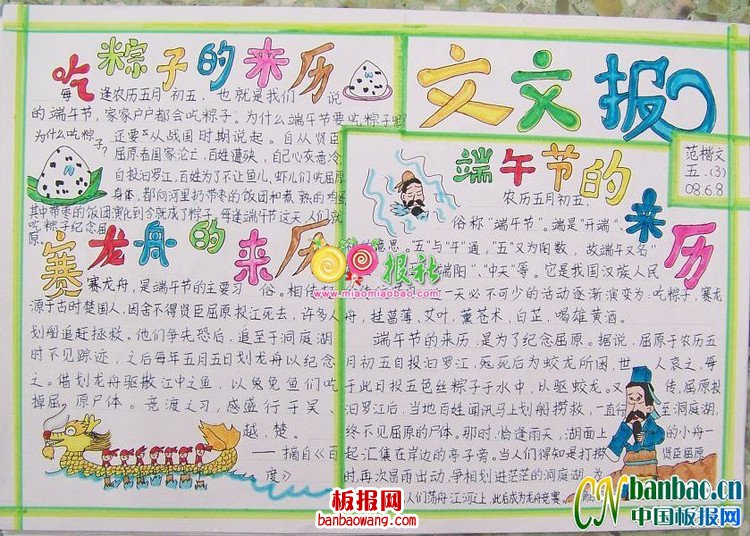 文文报
范楷文
五.(3)
08.6.8
吃粽子的来历
每 逢农历五月初五.也就是我们 说
的端午节,家家户户都会吃粽子。为什么端午节要吃粽子呢?
为什么吃粽子?
还要从战国时期说起。自从贤臣
屈原看国家沦亡,百姓遭殃,自己
自投汩罗江,百姓为了不让鱼儿,虾儿们吃屈原
身体,都向河里扔带枣的饭团和煮熟的鸡蛋
其中带枣的饭团演化到今就成了粽子.每逢端午节这天人们就
吃粽子纪念屈
原。
赛龙舟的来历
赛龙舟,是端午节的主要习 俗。相传起
源于古时楚国人,因舍不得贤臣屈原投江死去,许多人
划船追赶拯救。他们争先恐后,追至于洞庭湖
时不见踪迹,之后每年五月五日划龙舟以纪念
之。借划龙舟驱散江中之鱼,以免鱼们吃
掉屈.原尸体。竞渡之习,感盛行于吴、
越.楚。
——摘自《百
度》
端午节的来历
农历五月初五.
俗称"端午节"。端是"开端"
意思。"五"与"午"通,"五"又为阳数,故端午又名"
端阳","中天"等。它是我国汉族人民
一天必不可少的活动逐渐演变为:吃粽子,赛龙
舟,挂菖蒲、艾叶,薰苍术,白芷,喝雄黄酒。
端午节的来历,是为了纪念屈原。据说,屈原于农历五
月初五自投汩罗江,死后为蛟龙所困,世人哀之,每
于此日投五色丝粽子于水中,以驱蛟龙。又 传,屈原投
汩罗江后,当地百姓闻讯马上划船捞救,一直行 至洞庭湖,
终不见屈原的尸体。那时,恰逢雨天,湖面上 的小舟一
起汇集在岸边的亭子旁。当人们得知是打捞 贤臣屈原
时,再次冒雨出动,争相划进茫茫的洞庭湖。为
人们荡舟江河上,此后成为龙舟竞赛。
报社
www.miaomiaobao.com
板报网
banbaowang.com
CN banbao.cn
中国板报网